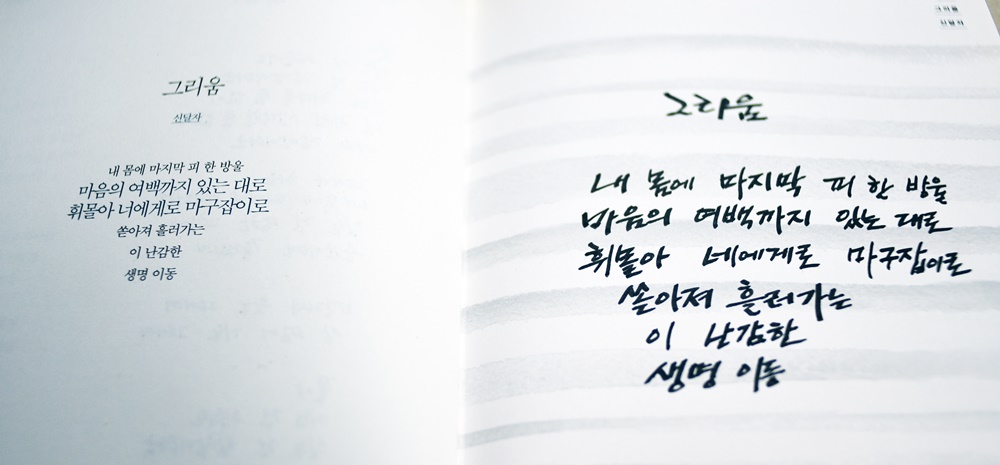 그리움
신달자
내 몸에 마지막 피 한 방울
마음의 여백까지 있는 대로
휘몰아 너에게로 마구잡이로
쏟아져 흘러가는
이 난감한
생명 이동
그리움
신달자
그리움
내 몸에 마지막 피 한 방울
마음의 여백까지 있는 대로
휘몰아 네에게로 마구잡이로
쏟아져 흘러가는
이 난감한
생명 이동